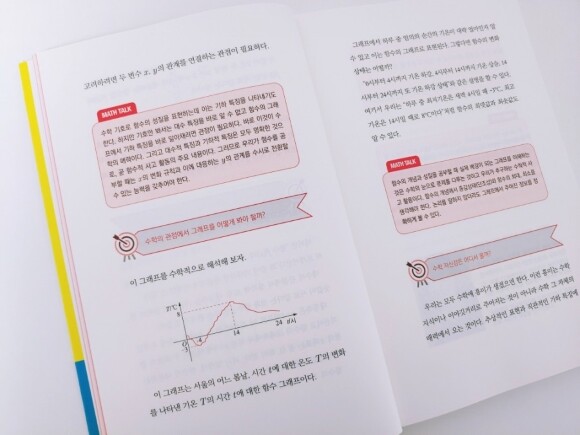 고려하려면 두 변수 x, y의 관계를 연결하는 관점이 필요하다.
MATH TALK
수학 기호로 함수의 성질을 표현하는데 이는 기하 특징을 나타내기도
한다. 하지만 기호만 봐서는 대수 특징을 바로 알 수 없고 함수의 그래
프에서 기하 특징을 바로 읽어내려면 관점이 필요하다. 바로 이것이 수
학의 매력이다. 그리고 대수적 특징과 기하적 특징은 모두 변화한 것으
로, 곧 함수적 사고 활동의 주요 내용이다. 그러므로 우리가 함수를 공
부할 때는 y의 변화 규칙과 이에 대응하는 y의 관계를 수시로 전환할
수 있는 능력을 갖추어야 한다.
수학의 관점에서 그래프를 어떻게 봐야 할까?
이 그래프를 수학적으로 해석해 보자.
T/℃
8
O
-3
4
14
24
t/시
이 그래프는 서울의 어느 봄날, 시간 t에 대한 온도 T의 변화
를 나타낸 기온 T의 시간 t에 대한 함수 그래프이다.
그래프에서 하루 중 임의의 순간의 기온이 대략 얼마인지 알
수 있고 이는 함수의 그래프로 표현된다. 그렇다면 함수의 변화
상태는 어떨까?
"0시부터 4시까지 기온 하강, 4시부터 14시까지 기온 상승, 14
시부터 24시까지 또 기온 하강 상태"와 같은 설명을 할 수 있다.
여기서 우리는 "하루 중 최저기온은 새벽 4시일 때 -3℃, 최고
기온은 14시일 때로 8℃이다"처럼 함수의 최댓값과 최솟값도
알 수 있다.
MATH TALK
함수의 개념과 성질을 공부할 때 실제 배경이 되는 그래프를 이해하는
것은 수학의 눈으로 문제를 다루는 것이고 우리가 추구하는 수학적 사
고 활동이다. 함수의 개념에서 증감상태(단조성)와 함수의 최대, 최소를
생각해야 한다. 논리를 알아야 하지 않더라도 그래프에서 주어진 정보를 정
확하게 볼 수 있다.
수학 자신감은 어디서 올까?
우리는 모두 수학에 흥미가 생겼으면 한다. 이런 흥미는 수학
지식이나 이야깃거리로 주어지는 것이 아니라 수학 그 자체의
매력에서 오는 것이다. 추상적인 표현과 직관적인 기하 특징에